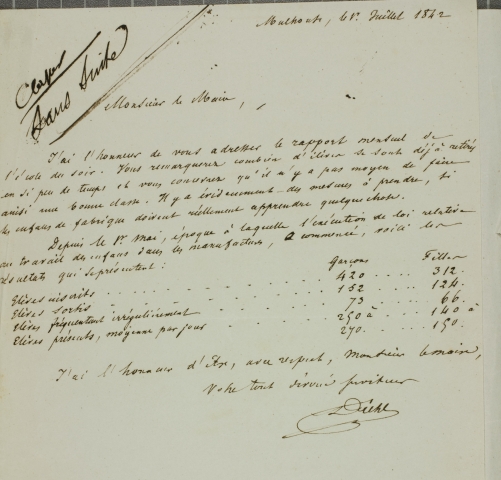 Mulhouse, le 1er Juillet 1842
Classer
Sans Suite
Monsieur le Maire,
J'ai l'honneur de vous adresser le rapport mensuel de
l'école du soir. Vous remarquerez combien d'élèves se sont déjà retirés
en si peu de temps et vous conviendrez qu'il n'y a pas moyen de faire
ainsi une bonne classe. Il y a évidemment des mesures à prendre, si
les enfans de fabrique doivent réellement apprendre quelque chose.
Depuis le 1er Mai, époque à laquelle l'exécution de loi relative
au travail des enfans dans les manufactures, a commencé, voilà les
résultats qui se présentent:
Garçons Filles
Elèves inscrits 420 312.
Elèves sortis 152 124.
Elèves fréquentant irrégulièrement 73 66.
Elèves présents, moyenne par jour 250 à 140 à
270. 150.
J'ai l'honneur d'être, avec respect, Monsieur le maire,
Votre tout dévoué serviteur
Diehl